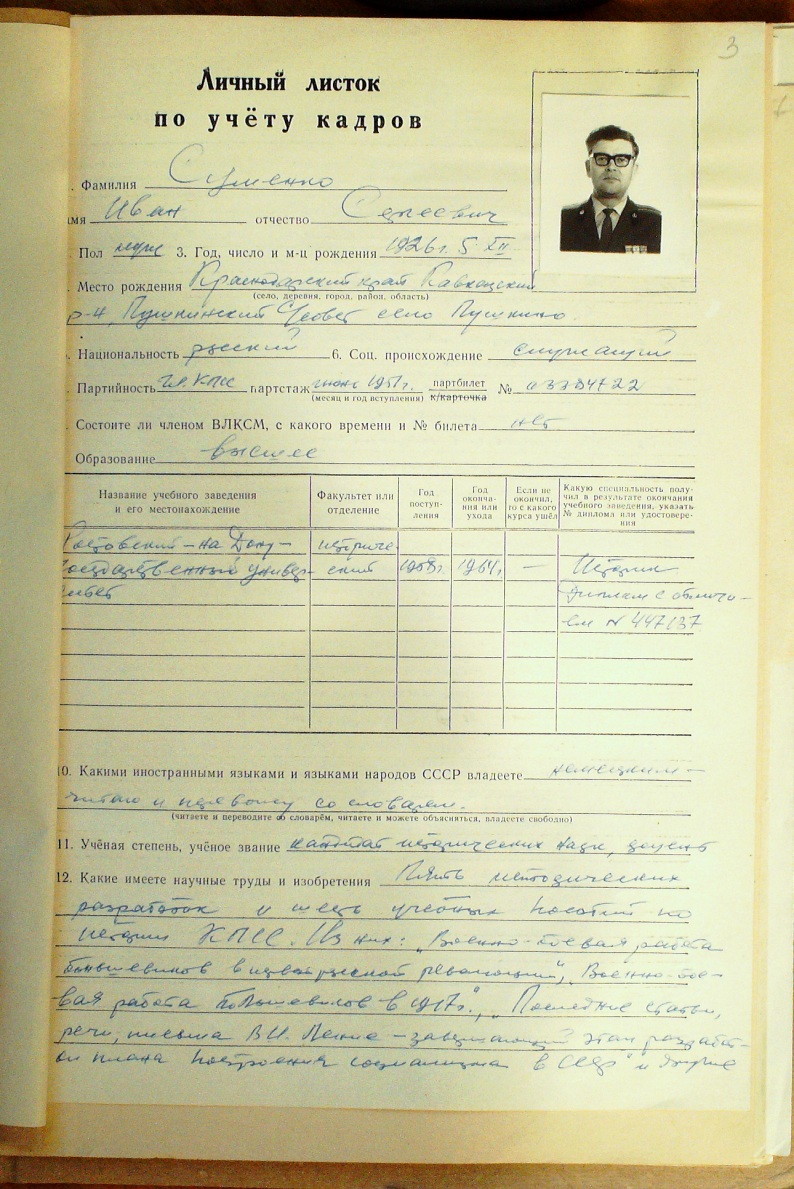 3
Личный листок
по учёту кадров
. Фамилия Суменко
мя Иван отчество Сергеевич
Пол муж 3. Год, число и м-ц рождения 1926г. 5 XII
. Место рождения Краснодарский край Кавказский
(село, деревня, город, район, область)
р-н, Пушкинский С/совет село Пушкино
. Национальность русский 6. Соц. происхождение служащий
. Партийность чл. КПСС партстаж июнь 1951г. партбилет к/карточка №
(месяц и год вступления)
. Состоите ли членом ВЛКСМ, с какого времени и № билета нет
Образование высшее
Название учебного заведения и его местонахождение
Факультет или отделение
Год поступ-ления
Год оконча-ния или ухода
Если не окончил, то с какого курса ушёл
Какую специальность полу-чил в результате окончания учебного заведения, указать № диплома или удостовере-ния
Ростовский-на Дону- историче-
государственный универ- ский 1958г. 1964г. — Историк
ситет Диплом с отличи-
ем № 447137
10. Какими иностранными языками и языками народов СССР владеете немецким —
читаю и перевожу со словарем.
(читаете и переводите со словарём, читаете и можете объясняться, владеете свободно)
11. Учёная степень, учёное звание кандидат исторических наук, доцент
12. Какие имеете научные труды и изобретения Пять методических
разработок и шесть учебных пособий по
истории КПСС. Из них: „Военно-боевая работа
большевиков в первой русской революции", „Военно-бое-
вая работа большевиков в 1917г.", „Последние статьи,
речи, письма В.И. Ленина — завершающий этап разработ-
ки плана построения социализма в СССР" и другие